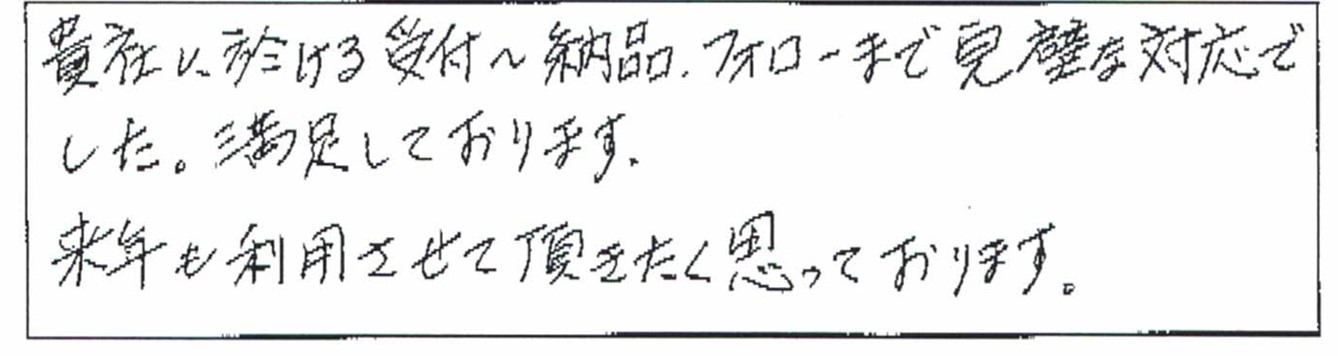 貴社に於ける受付～納品、フォローまで完璧な対応で
した。満足しております。
来年も利用させて頂きたく思っております。